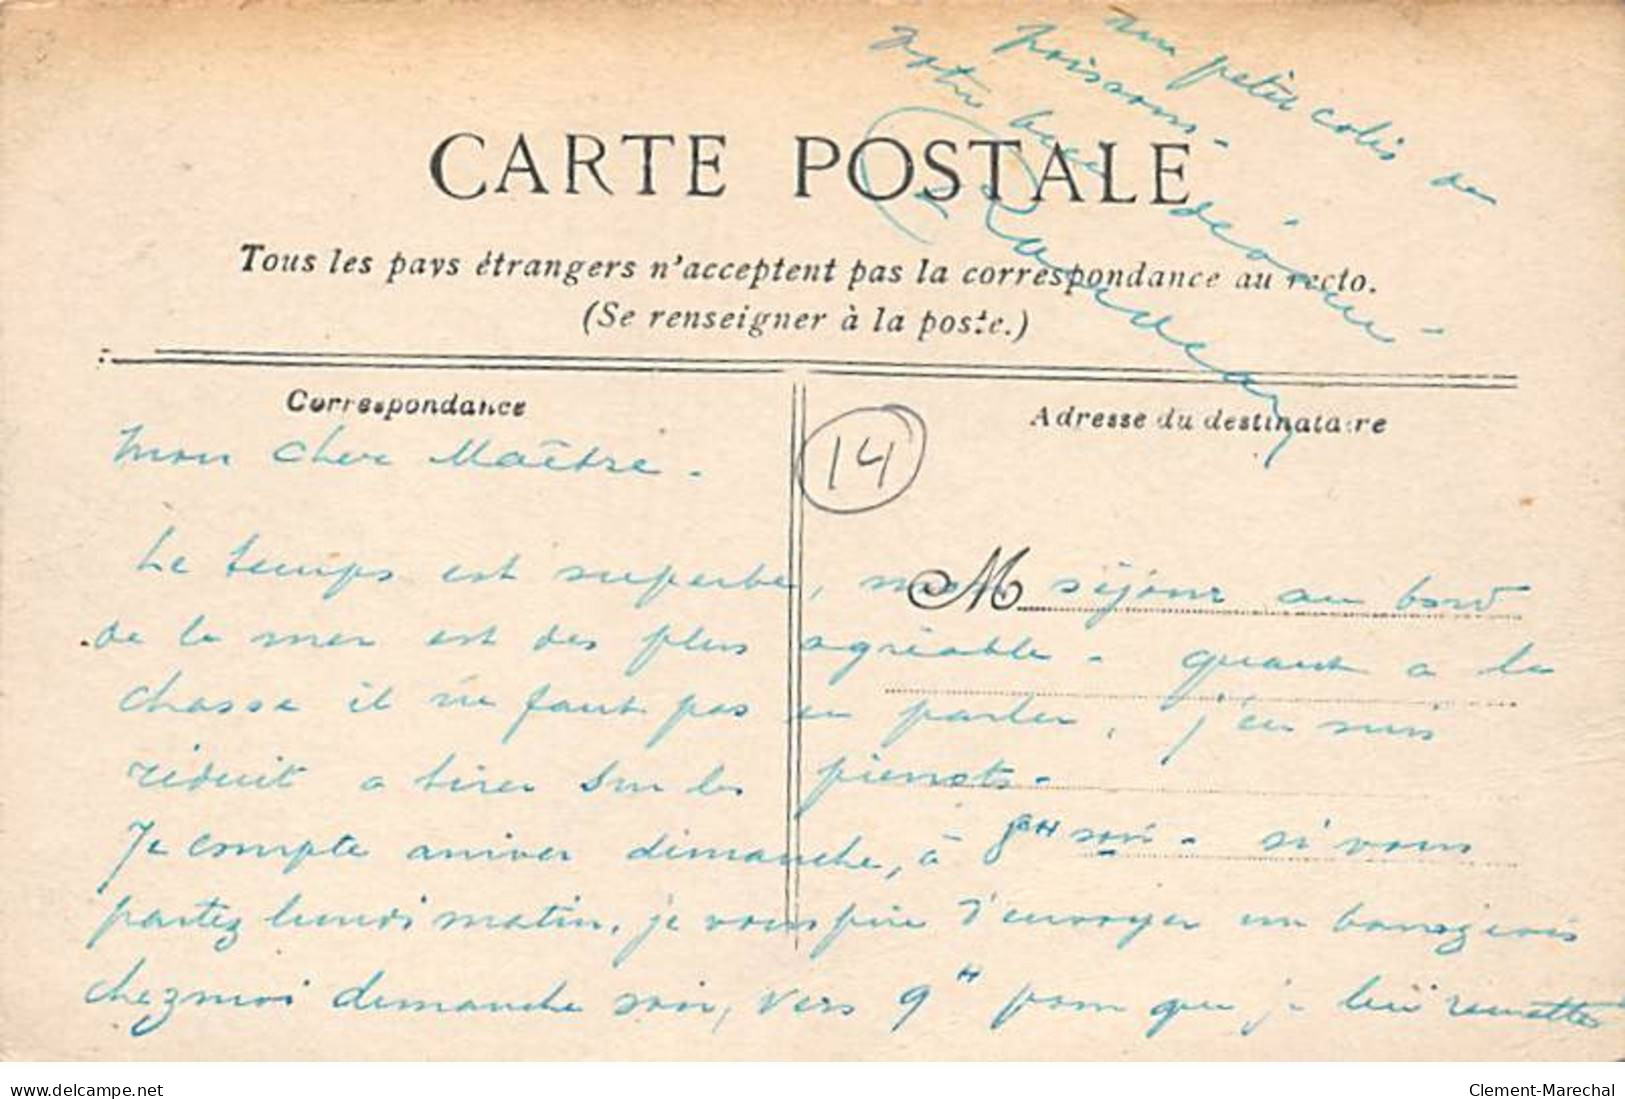 CARTE POSTALE
Tous les pays étrangers n'acceptent pas la correspondance au recto.
(Se renseigner à la poste.)
Correspondance
Adresse du destinataire
14
M
Mon cher Maître.
Le temps est superbe, mon séjour au bord
de la mer est des plus agréable. quant a la
chasse il ne faut pas en parler, j'en suis
réduit a tirer sur les
Je compte arriver dimanche, à 8H soir. si vous
partez lundi matin, je vous prie d'envoyer un
chez moi dimanche soir, vers 9H pour que je lui remette
un petit colis de
poisson.
Votre bien dévoué.
delcampe.net
Clement-Marechal